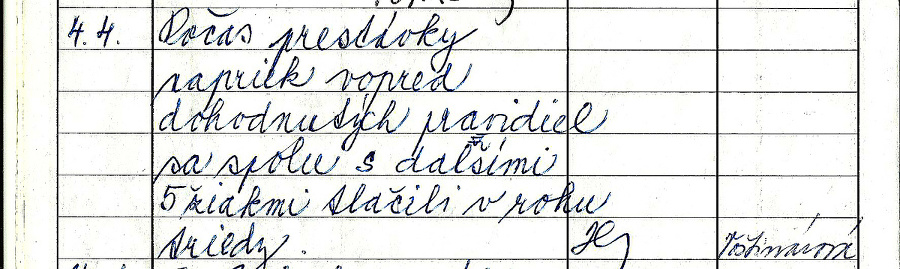 4.4. Počas prestávky
napriek vopred
dohodnutých pravidiel
sa spolu s dalšími
5 žiakmi tlačili v rohu
triedy.